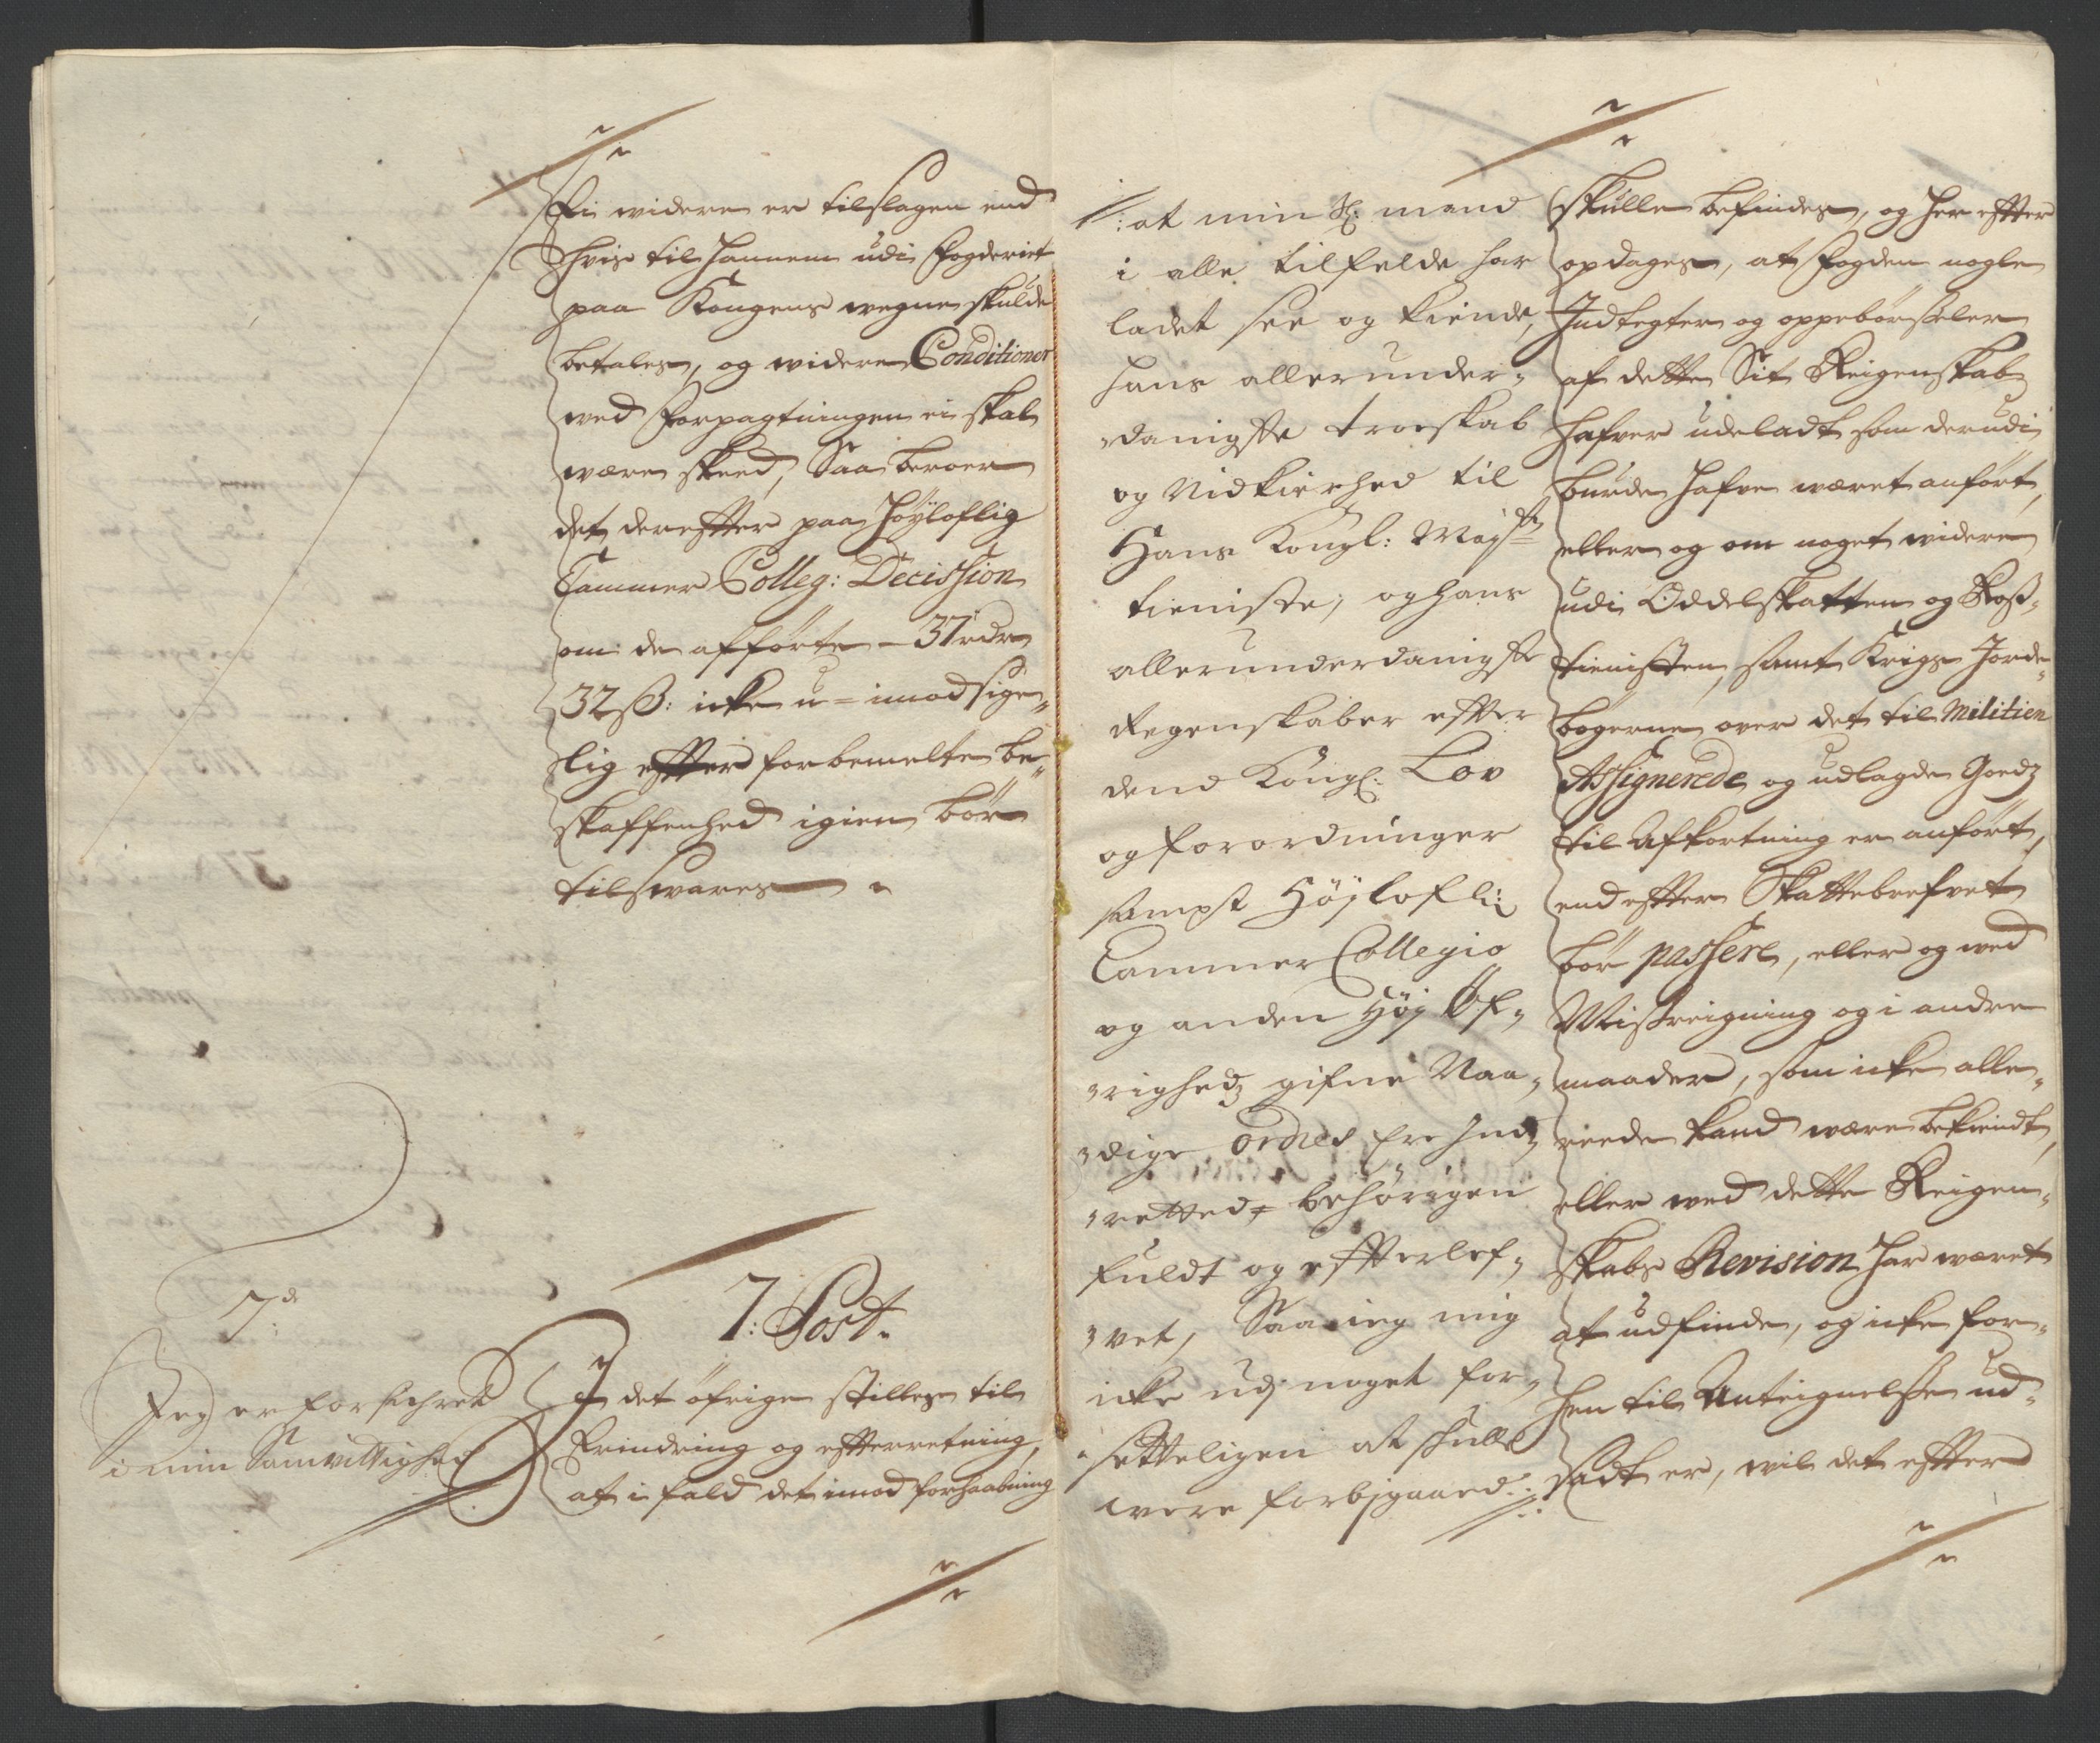 Ei widere er tilslagen end
hvis til hannem udi Fogderiet
paa Kongens wegne skulde
betales, og widere Conditioner
wed Forpagtningen ei skal
være skeed, Saa beroer
det derefter paa Høyloflig
Cammer Colleg: Decission
om de afførte - 37 rdr
32 ß: icke u-imodsige„
lig efter forbemelte be„
skaffenhed igien bør
tilswares
7de
Jeg er forsichret
i min Samvittighed
7: Post.
I det øfrige stilles til
Erindring og efterretning,
at i fald det imod forhaabning
/: at min Sl: mand
i alle tilfelde har
ladet see og kiende,
hans allerunder„
danigste troeskab
og Nidkierhed til
Hans Kongl: Mayst
tieniste, og hans
allerunderdanigste
Regenskaber efter
dend Kongl: Lov
og forordninger
sampt Høylofli:
Cammer Collegio
og anden Høy Øf„
righedz gifne Naa„
dige ordres
retted, behørigen
fuldt og efterlef„
vet, Saa ieg mig
icke udj noget for„
setteligen at skulle
were forbigaaed :/
skulle befindes, og her efter
opdages, at Fogden nogle
Indtegter og oppebørseler
af dette Sit Reigenskab
hafver udeladt som derudi
burde hafve wæret anført,
eller og om noget widere
udi Oddelskatten og Ross„
tienisten, samt Krigs Jorde„
bøgerne over det til Militien
Assignerede og udlagde Goedz
til Afkortning er anført,
end efter Skattebrefvet
bør passere, eller og wed
Misreigning og i andre
maader, som icke alle„
reede kand være bekiendt,
eller wed dette Reigen„
skabs Revision har wæret
at udfinde, og icke for„
hen til Anteignelse ud„
sadt er, wil det efter